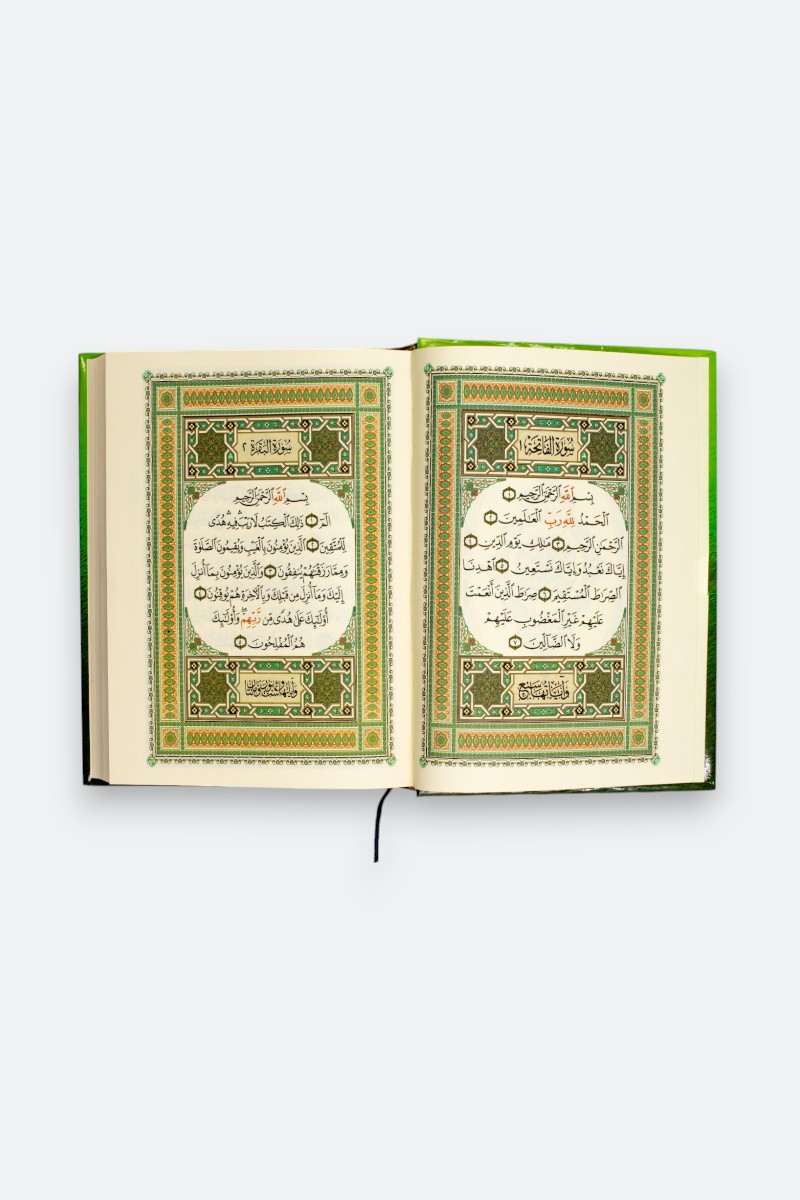 سُورَةُ الفَاتِحَةِ ١
بِسْمِ ٱللَّهِ ٱلرَّحْمَٰنِ ٱلرَّحِيمِ ١
ٱلْحَمْدُ لِلَّهِ رَبِّ ٱلْعَٰلَمِينَ ٢
ٱلرَّحْمَٰنِ ٱلرَّحِيمِ ٣ مَٰلِكِ يَوْمِ ٱلدِّينِ ٤
إِيَّاكَ نَعْبُدُ وَإِيَّاكَ نَسْتَعِينُ ٥ ٱهْدِنَا
ٱلصِّرَٰطَ ٱلْمُسْتَقِيمَ ٦ صِرَٰطَ ٱلَّذِينَ أَنْعَمْتَ
عَلَيْهِمْ غَيْرِ ٱلْمَغْضُوبِ عَلَيْهِمْ
وَلَا ٱلضَّآلِّينَ ٧
وَآيَاتُهَا سَبْعٌ
سُورَةُ البَقَرَةِ ٢
بِسْمِ ٱللَّهِ ٱلرَّحْمَٰنِ ٱلرَّحِيمِ
الٓمٓ ١ ذَٰلِكَ ٱلْكِتَٰبُ لَا رَيْبَ ۛ فِيهِ ۛ هُدًى
لِّلْمُتَّقِينَ ٢ ٱلَّذِينَ يُؤْمِنُونَ بِٱلْغَيْبِ وَيُقِيمُونَ ٱلصَّلَوٰةَ
وَمِمَّا رَزَقْنَٰهُمْ يُنفِقُونَ ٣ وَٱلَّذِينَ يُؤْمِنُونَ بِمَآ أُنزِلَ
إِلَيْكَ وَمَآ أُنزِلَ مِن قَبْلِكَ وَبِٱلْءَاخِرَةِ هُمْ يُوقِنُونَ ٤
أُو۟لَٰٓئِكَ عَلَىٰ هُدًى مِّن رَّبِّهِمْ ۖ وَأُو۟لَٰٓئِكَ
هُمُ ٱلْمُفْلِحُونَ ٥